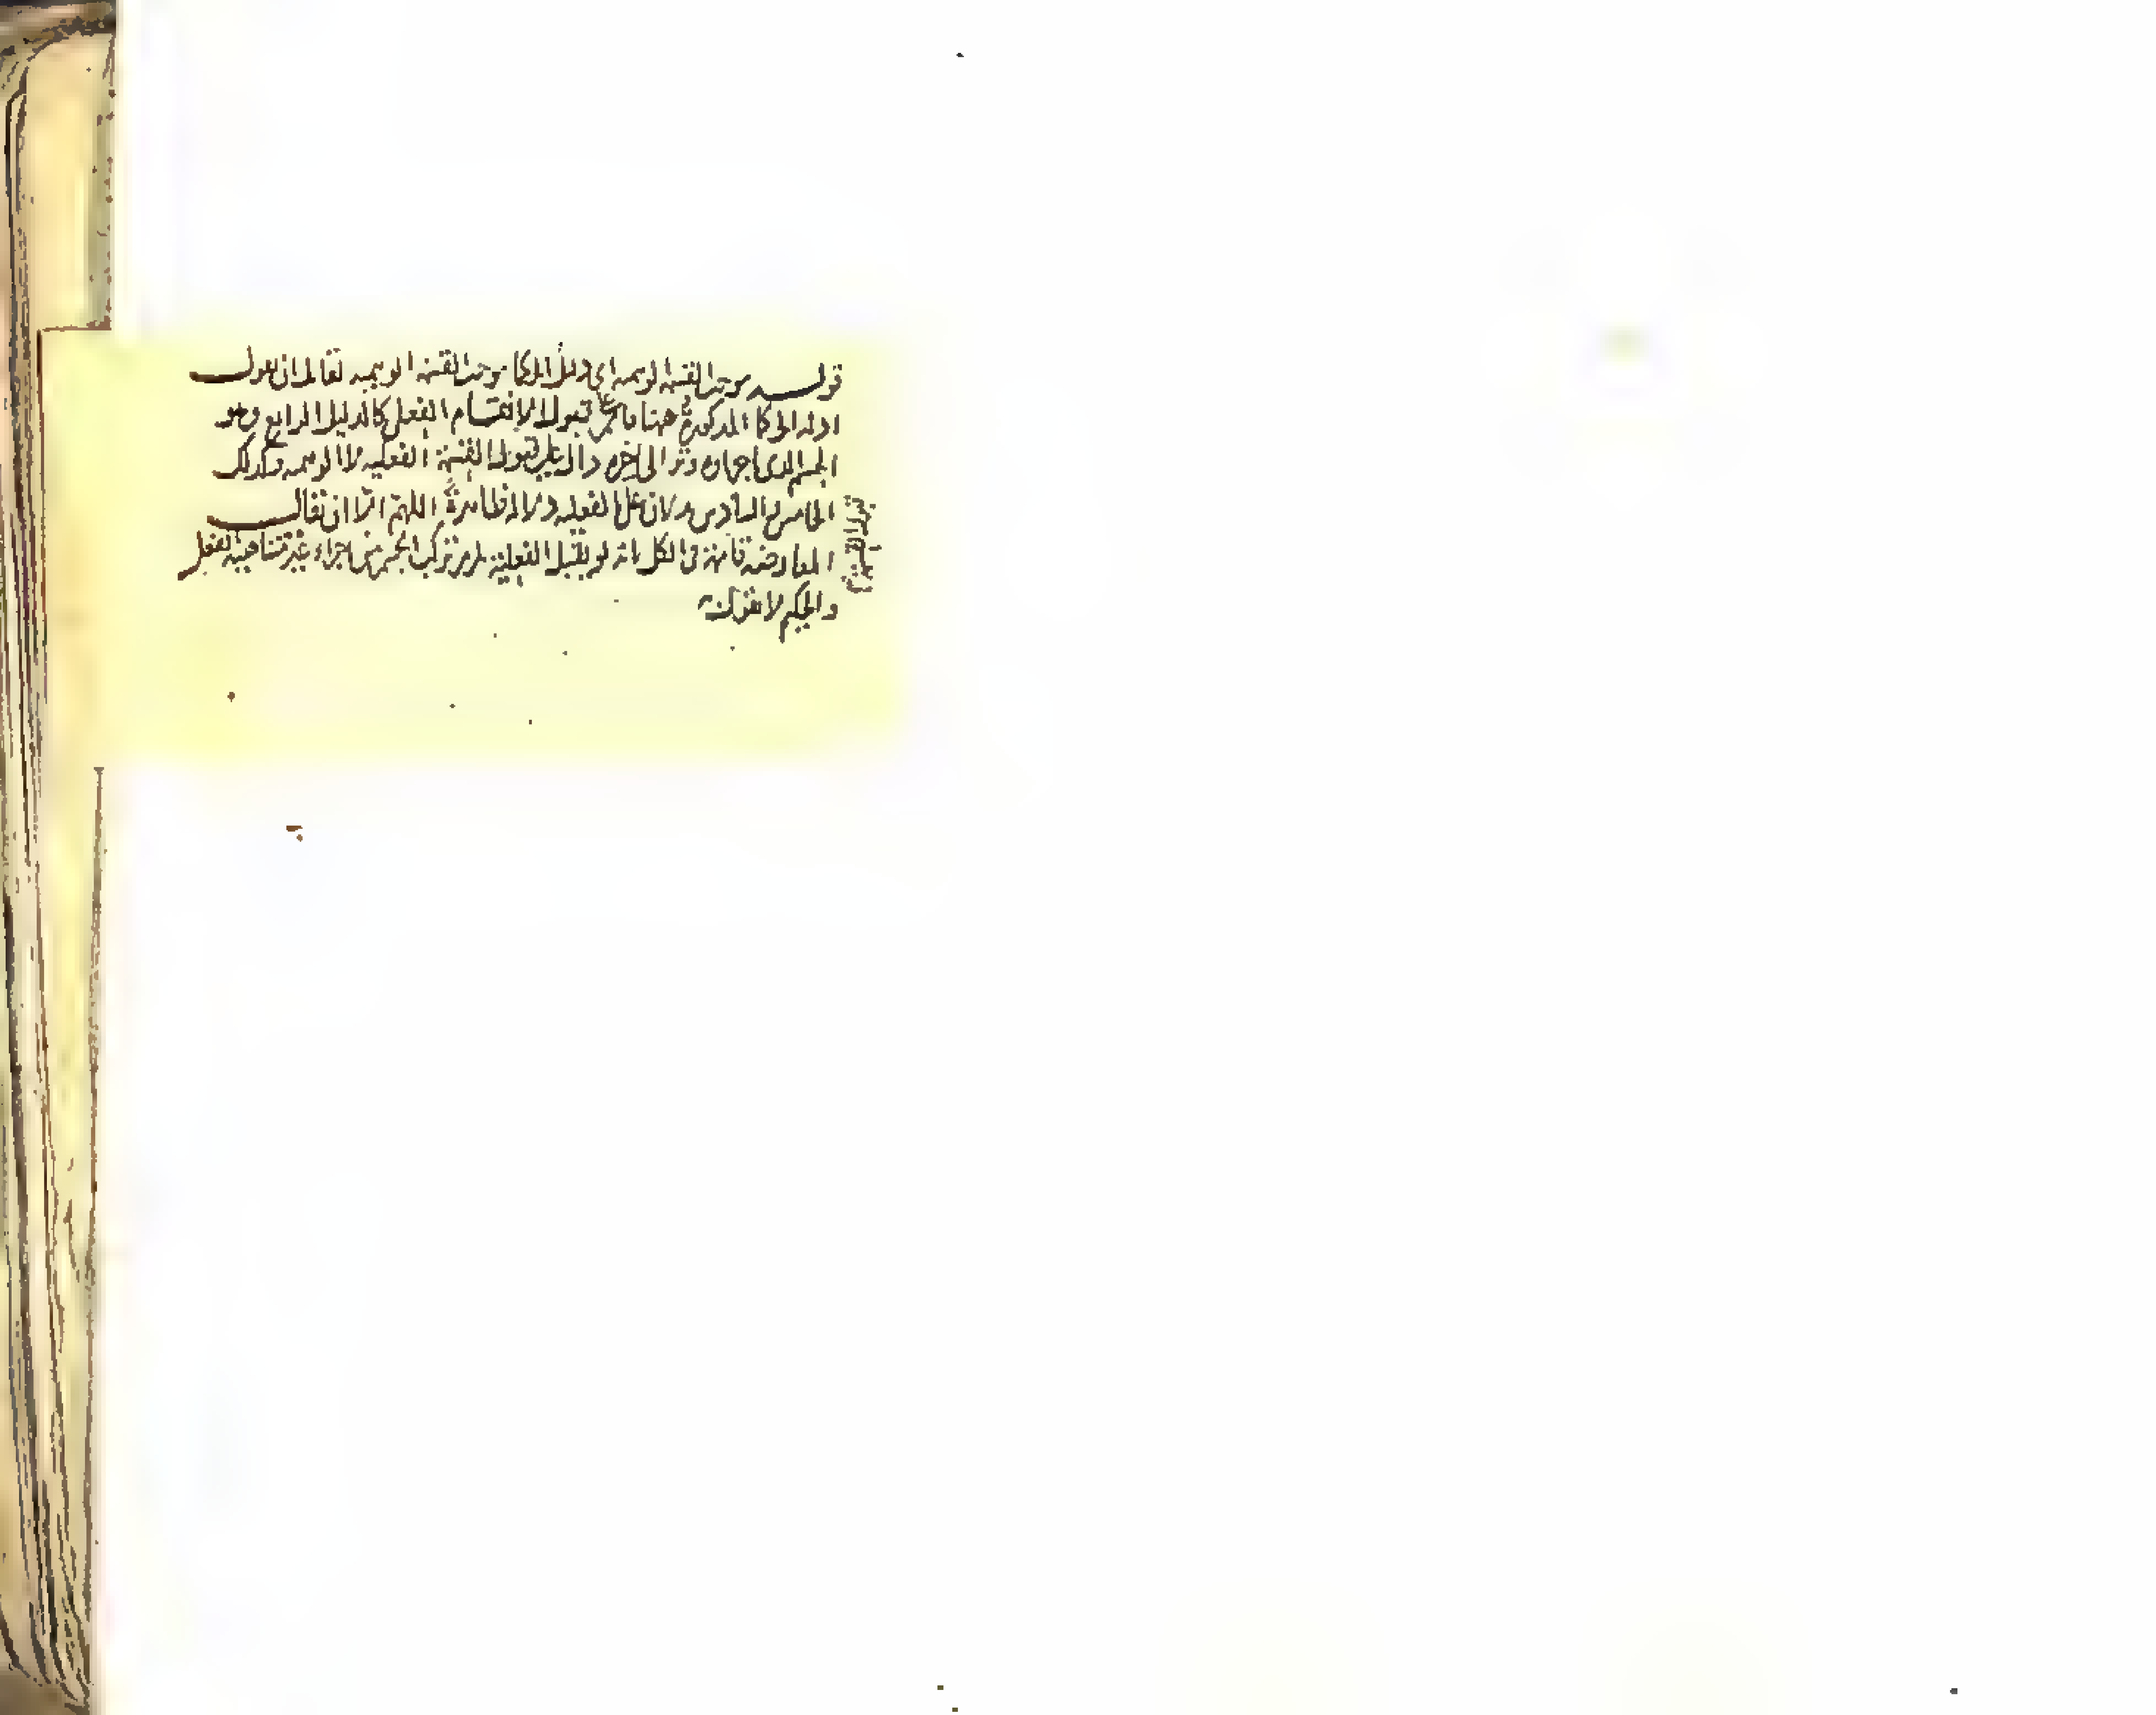 قوله موجب القسمة الوهمية اى دليل الحكما موجب القسمة الوهمية لقائل ان يقول
ادلة الحكما المذكورة ههنا قبول الانقسام الفعلى كالدليل الرابع وهو
الجسم الذى اجزاؤه وتر الى اخره دال على قبول القسمة الفعلية لا الوهمية وكذلك
الخامس والسادس يدلان على الفعلية دلالة ظاهرة اللهم الا ان يقال
المعارضة قائمة فى الكل بانه لو يقبل الفعلية لزم تركب الجسم من اجزاء غير متناهية بالفعل
والحكيم لا يقول به